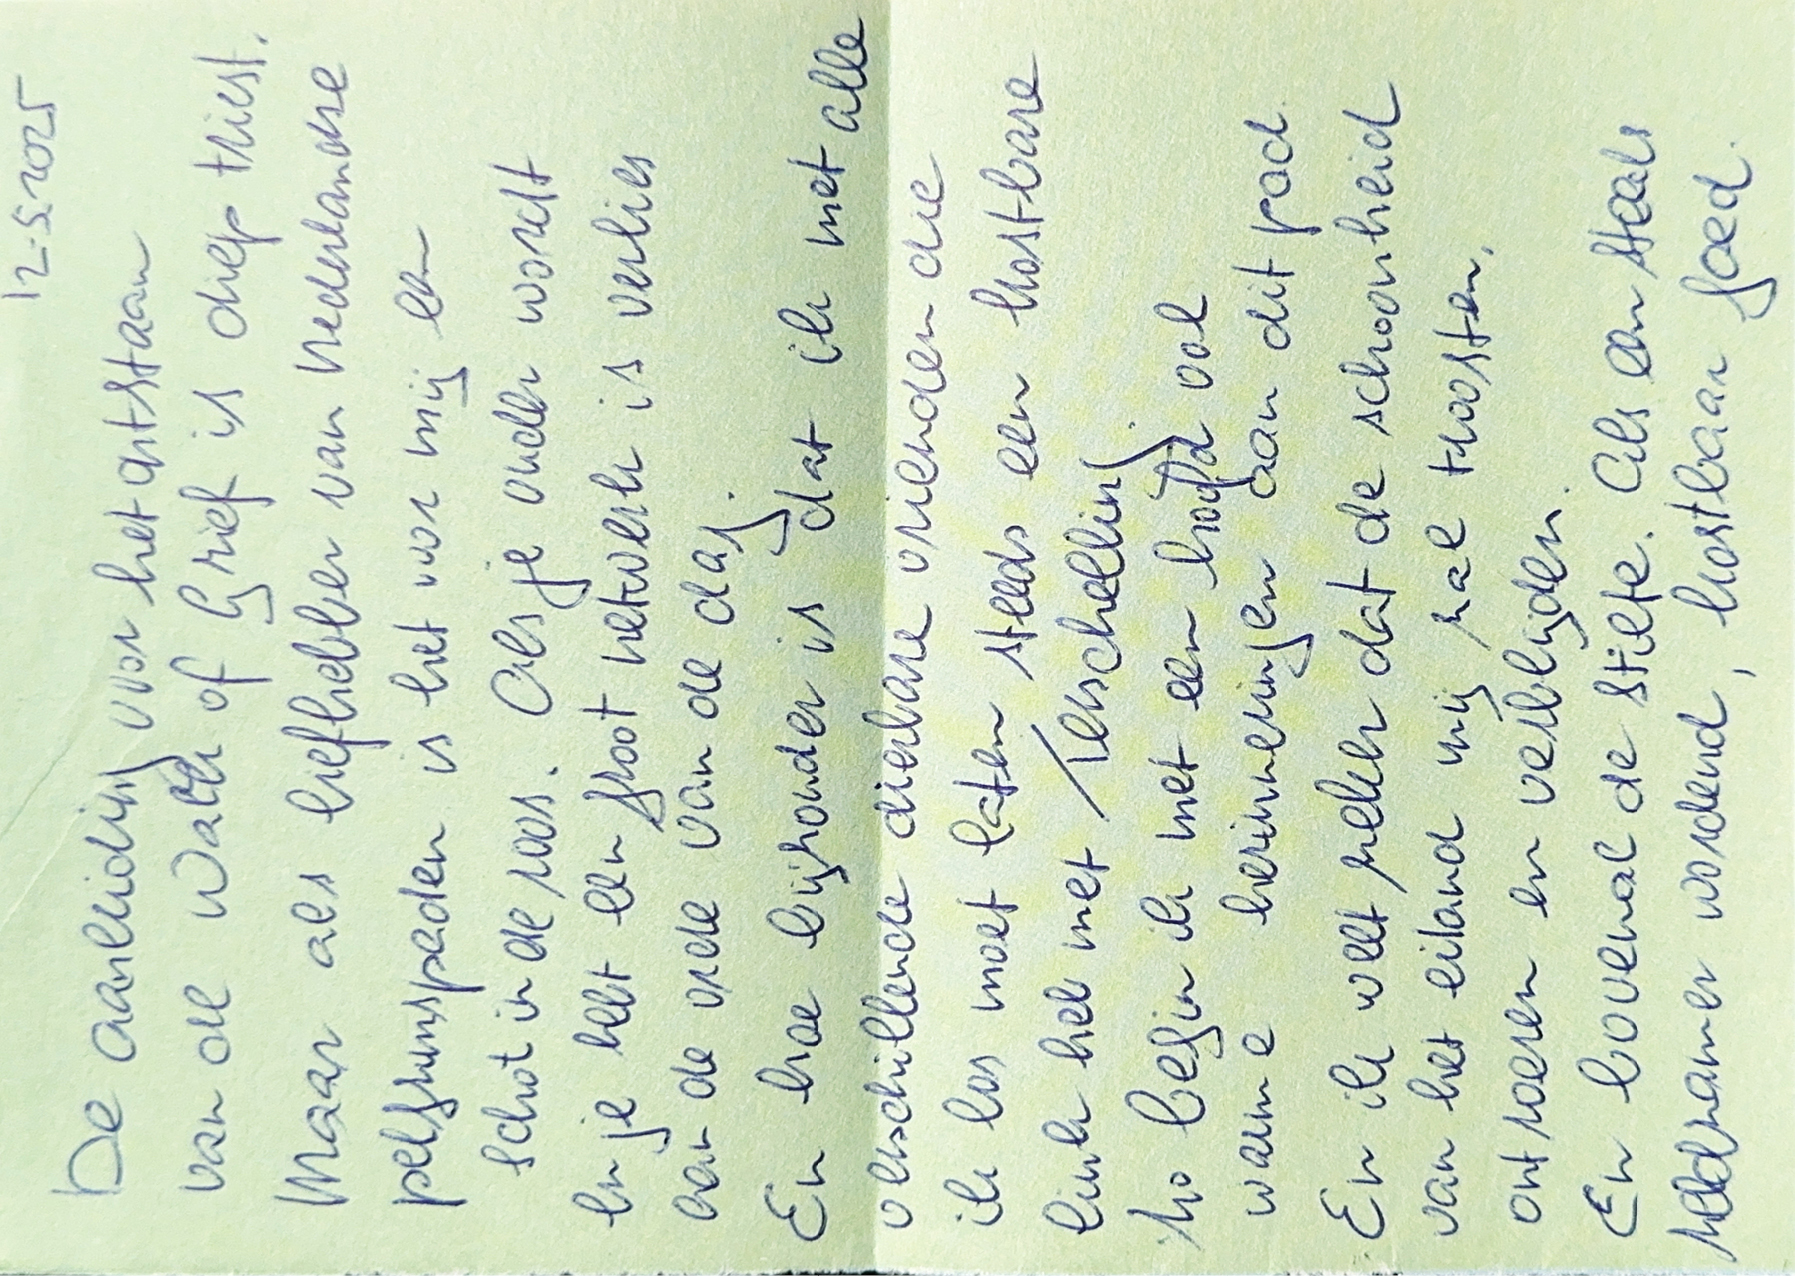 12-5-2025
De aanleiding voor het ontstaan
van de Walk of Grief is diep triest.
Maar als liefhebber van Nederlandse
pelgrimspaden is het voor mij een
schot in de roos. Als je ouder wordt
en je hebt een groot netwerk is verlies
aan de orde van de dag.
En hoe bijzonder is dat ik met alle
verschillende dierbare vrienden die
ik los moet laten steeds een kostbare
link heb met Terschelling.
Zo begin ik met een hoofd vol
warme herinneringen aan dit pad
En ik weet zeker dat de schoonheid
van het eiland mij zal troosten,
ontroeren en verblijden.
En bovenal de stilte. Als een steeds
zeldzamer wordend, kostbaar goed.